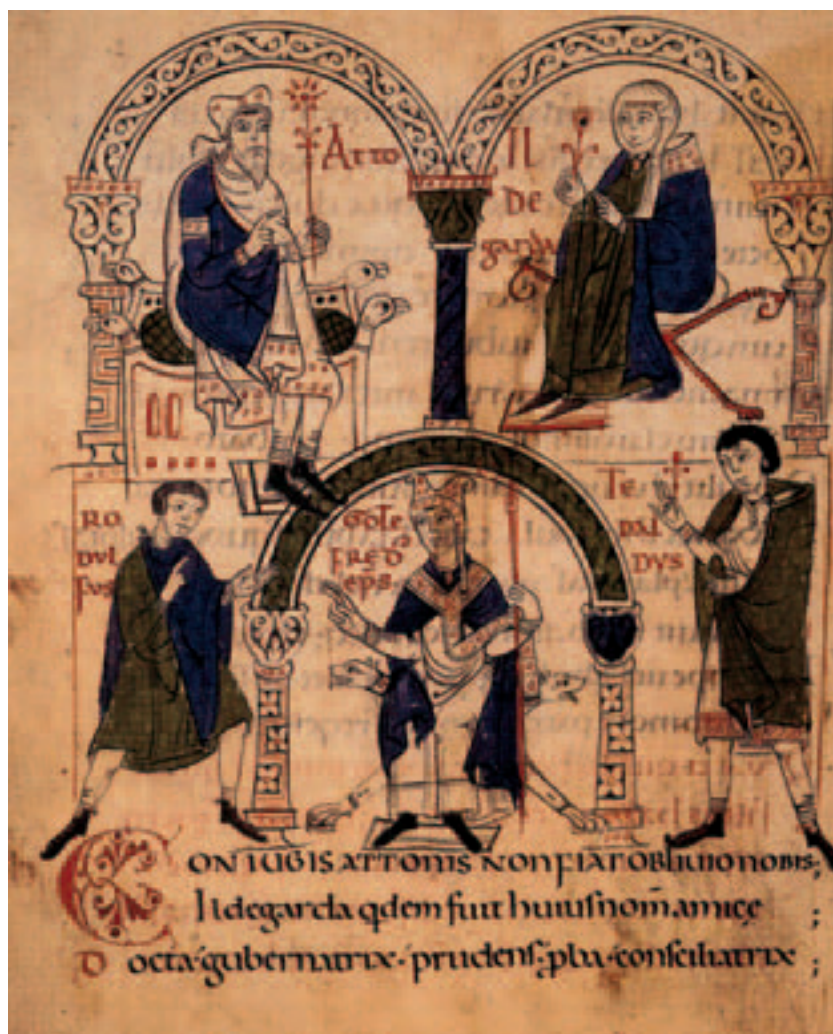 Atto
Il
de
garda
RO
DVL
fus
GOTE
FREĐ
EPS
Te
DAL
DVS
CONIUGIS ATTONIS NON FIAT OBLIUIO NOBIS;
Ildegarda qdem fuit huius nom̄ amicę ;
Docta·gubernatrix·prudens·pba·consciliatrix ;